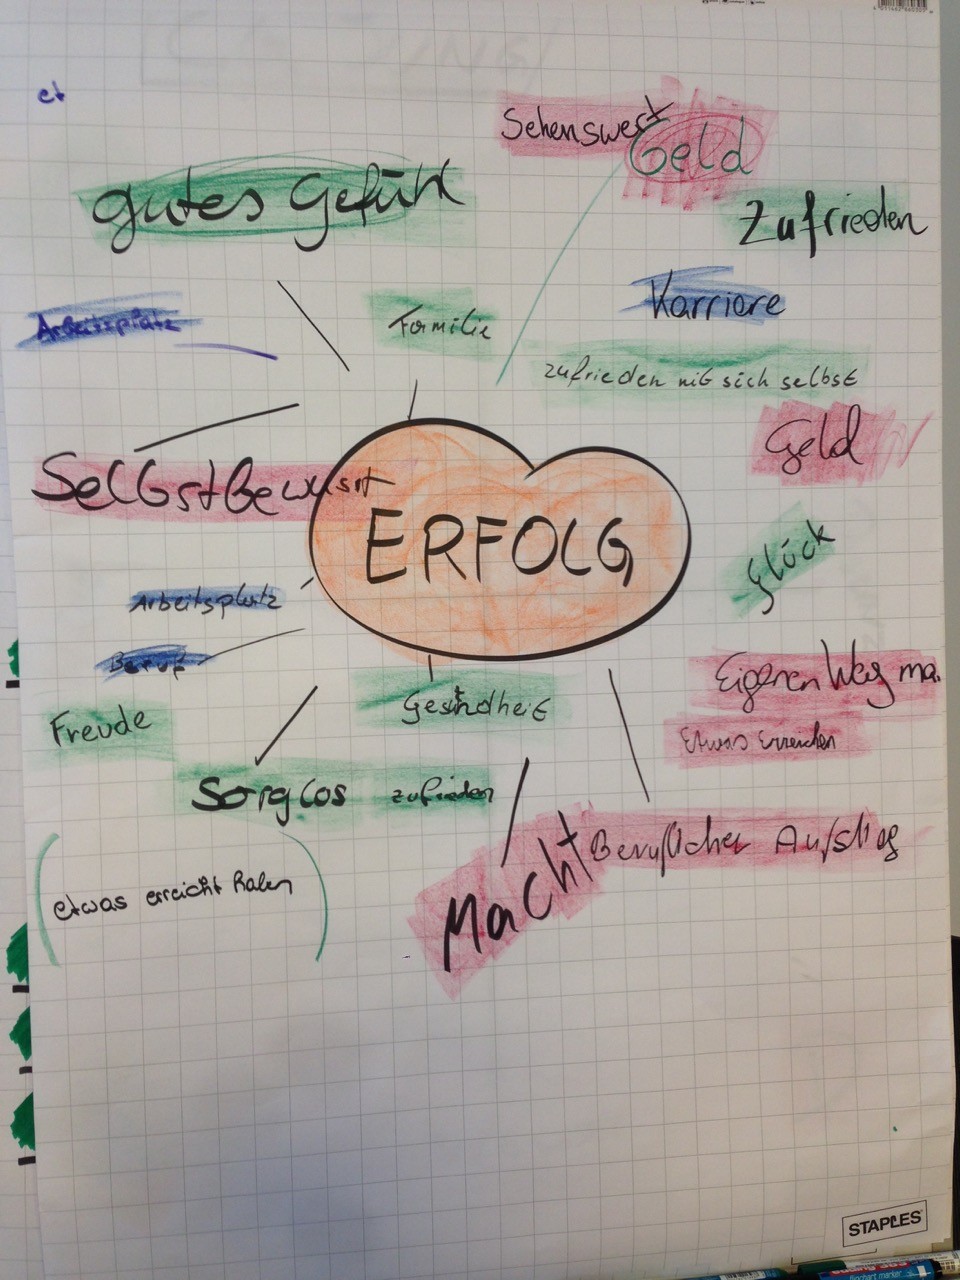 et
Sehenswert
Geld
gutes Gefühl
Zufrieden
Karriere
Arbeitsplatz
Familie
zufrieden mit sich selbst
Geld
Selbstbewusst
ERFOLG
Glück
Arbeitsplatz
Beruf
Eigenen Weg ma.
Gesundheit
Freude
Etwas Erreichen
Sorglos
zufrieden
Beruflicher Aufstieg
Macht
(etwas erreicht haben)
STAPLES